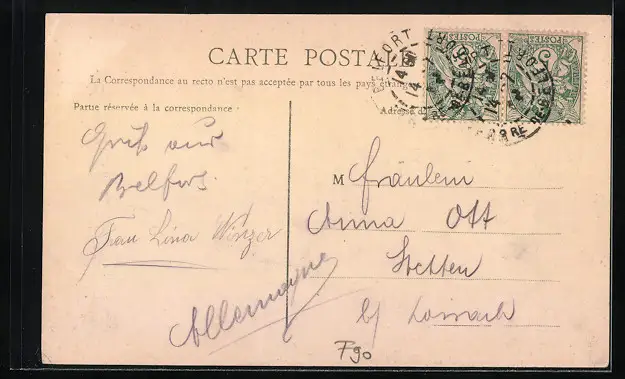 CARTE POSTALE
La Correspondance au recto n'est pas acceptée par tous les pays étrang
Partie réservée à la correspondance
Adresse d
POSTES
POSTES
Gruß aus
Belfort.
Frau Lina Winzer
M Fräulein
Anna Ott
Stetten
b/ Lörrach
Allemagne
F90